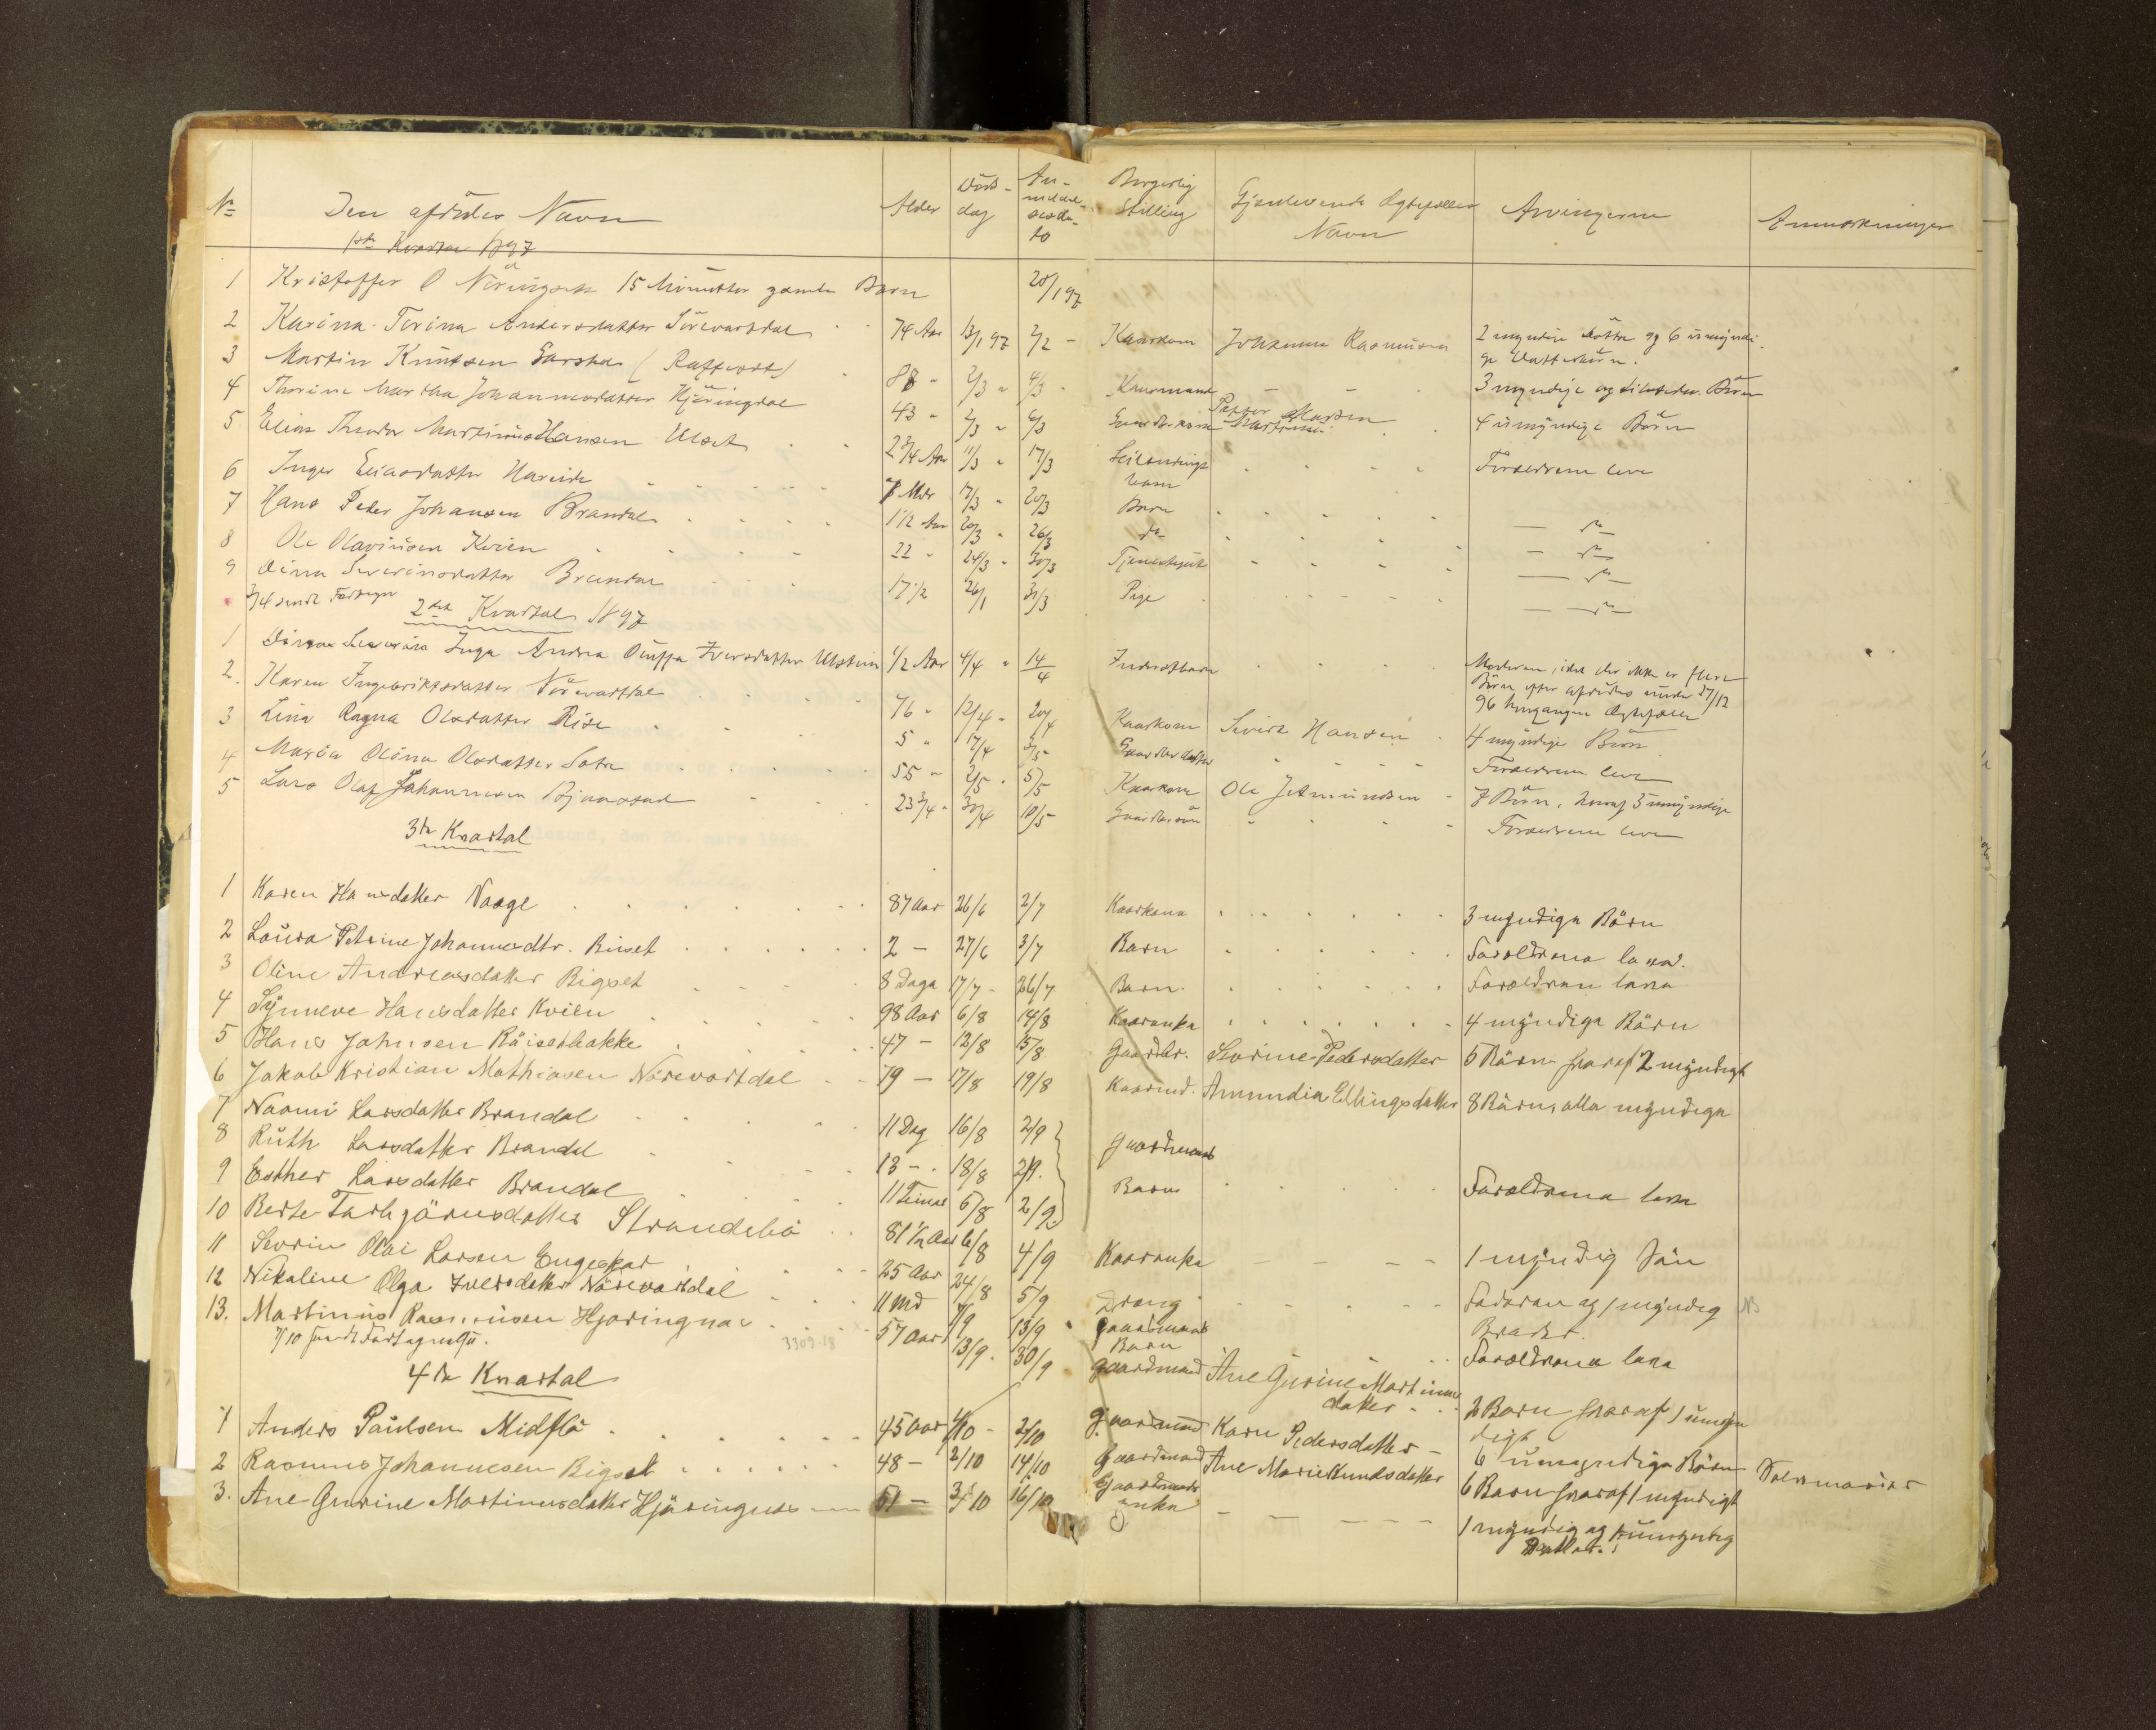 No Den afdødes Navn Alder Døds- dag An- meldel- sesda- to Borgerlig Stilling Gjenlevende Ægtefælles Navn Arvingerne Anmærkninger
1ste Kvartal 1897
1 Kristoffer O Nöringset 15 Minutter gamle Barn 28/1 97
2 Karina Torina Andersdatter Sörevartdal 74 Aar 13/1 97 2/2 Kaarkone Johannes Rasmusen 2 myndige Døttre og 6 umyndi-
ge Datterbörn.
3 Martin Knutsen Garshol (Raftevold) 88 " 2/3 " 4/3 Kaarmand 3 myndige Börn
4 Thorine Martha Johannesdatter Hjöringdal 43 " 2/3 " 6/3 Gaardkone Petter Martin 4 umyndige Börn
5 Elias Theodor Martinus Hansen Ulset 2 3/4 Aar 11/3 " 17/3 Leilendings
barn Forældrene leve
6 Inger Eliasdatter Hareide 7 Mdr 17/3 " 20/3 Barn do
7 Hans Peder Johansen Brandal 1 1/2 Aar 20/3 " 26/3 do do
8 Ole Olavinsen Kvien 22 " 24/3 " 30/3 Tjenestegut do
9 Dina Severinsdatter Brandal 17 1/2 26/1 31/3 Pige do
3/4 sendt Fortegn 2det Kvartal 1897
1 Inga Andrea Iversdatter Ulstein 1/2 Aar 4/4 " 14/4 Inderstbarn Moderen, idet der ikke er flere
Börn efter afdødes under 27/12
96 hengangne Ægtefælle
2. Karen Ingebrigtsdatter Nörevartdal 76 " 12/4 " 20/4 Kaarkone Sivert Hansen 4 myndige Börn
3 Lina Ragna Olsdatter Rise 5 " 17/4 3/5 Gaardbr datter Forældrene leve
4 Maria Olina Olsdatter Sætre 55 " 2/5 " 5/5 Kaarkone Ole Jetmundsen 7 Börn, hvoraf 5 umyndige
5 Lars Olaf Johannesen Bjaastad 23 3/4 " 30/4 10/5 Gaardbr sön Forældrene leve
3die Kvartal
1 Karen Hansdatter Vaage 87 Aar 26/6 2/7 Kaarkone 3 myndige Börn
2 Laura Petrine Johannesdtr. Buset 2 — 27/6 3/7 Barn Forældrene leve.
3 Oline Andreasdatter Rigset 8 Dage 17/7 - 26/7 Barn. Forældrene leve
4 Synneve Hansdatter Kvien 98 Aar 6/8 14/8 Kaarenke 4 myndige Börn
5 Hans Johnsen Röisetbakke 47 — 12/8 15/8 Gaardbr. Sevrine Pedersdatter 5 Börn hvoraf 2 myndige
6 Jakob Kristian Mathiasen Nörevartdal 79 — 17/8 19/8 Kaarmd. Amundia Ellingsdatter 8 Börn, alle myndige
7 Naomi Larsdatter Brandal 11 Dag 16/8 2/9
8 Ruth Larsdatter Brandal 13 — 18/8 2/9. Gaardmands
9 Esther Larsdatter Brandal 11 Timer 5/8 2/9 Barn Forældrene leve
10 Berte Torbjörnsdatter Strandebö 81 1/2 Aar 6/8 4/9 Kaarenke 1 myndig Sön
11 Sevrin Olai Larsen Engeskar 25 Aar 24/8 5/9 Dreng Faderen og 1 myndig
Broder.
12 Nikoline Olga Iversdatter Nörevartdal 11 Md 7/9 13/9 Gaardmands
Barn Forældrene leve
13. Martinus Rasmusen Hjöringnes 57 Aar 13/9. 30/9 Gaardmand Ane Gurine Martinus
datter 2 Börn hvoraf 1 umyn
digt
7/10 sendt Fortegnelse. 3309-18
4de Kvartal
1 Anders Paulsen Midflö 45 Aar 1/10 - 2/10 Gaardmand Karn Pedersdatter — 6 umyndige Börn
2 Rasmus Johannesen Rigset 48 — 2/10 14/10 Gaardmand Ane Marie Knudsdatter 6 Börn hvoraf 1 myndigt
3. Ane Gurine Martinusdatter Hjöringnes 51 — 3/10 16/10 Gaardmands
enke 1 myndig og 1 umyndig
Datter.